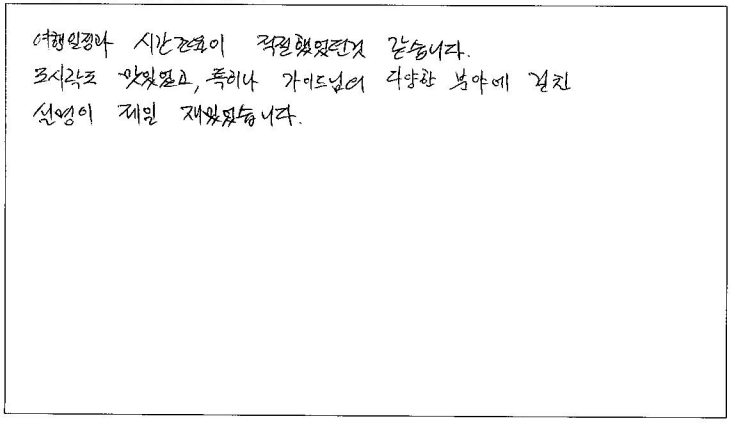 여행일정과 시간표이 적절했었던것 같습니다.
도시락도 맛있었고, 특히나 가이드님의 다양한 분야에 걸친
설명이 제일 재밌었습니다.